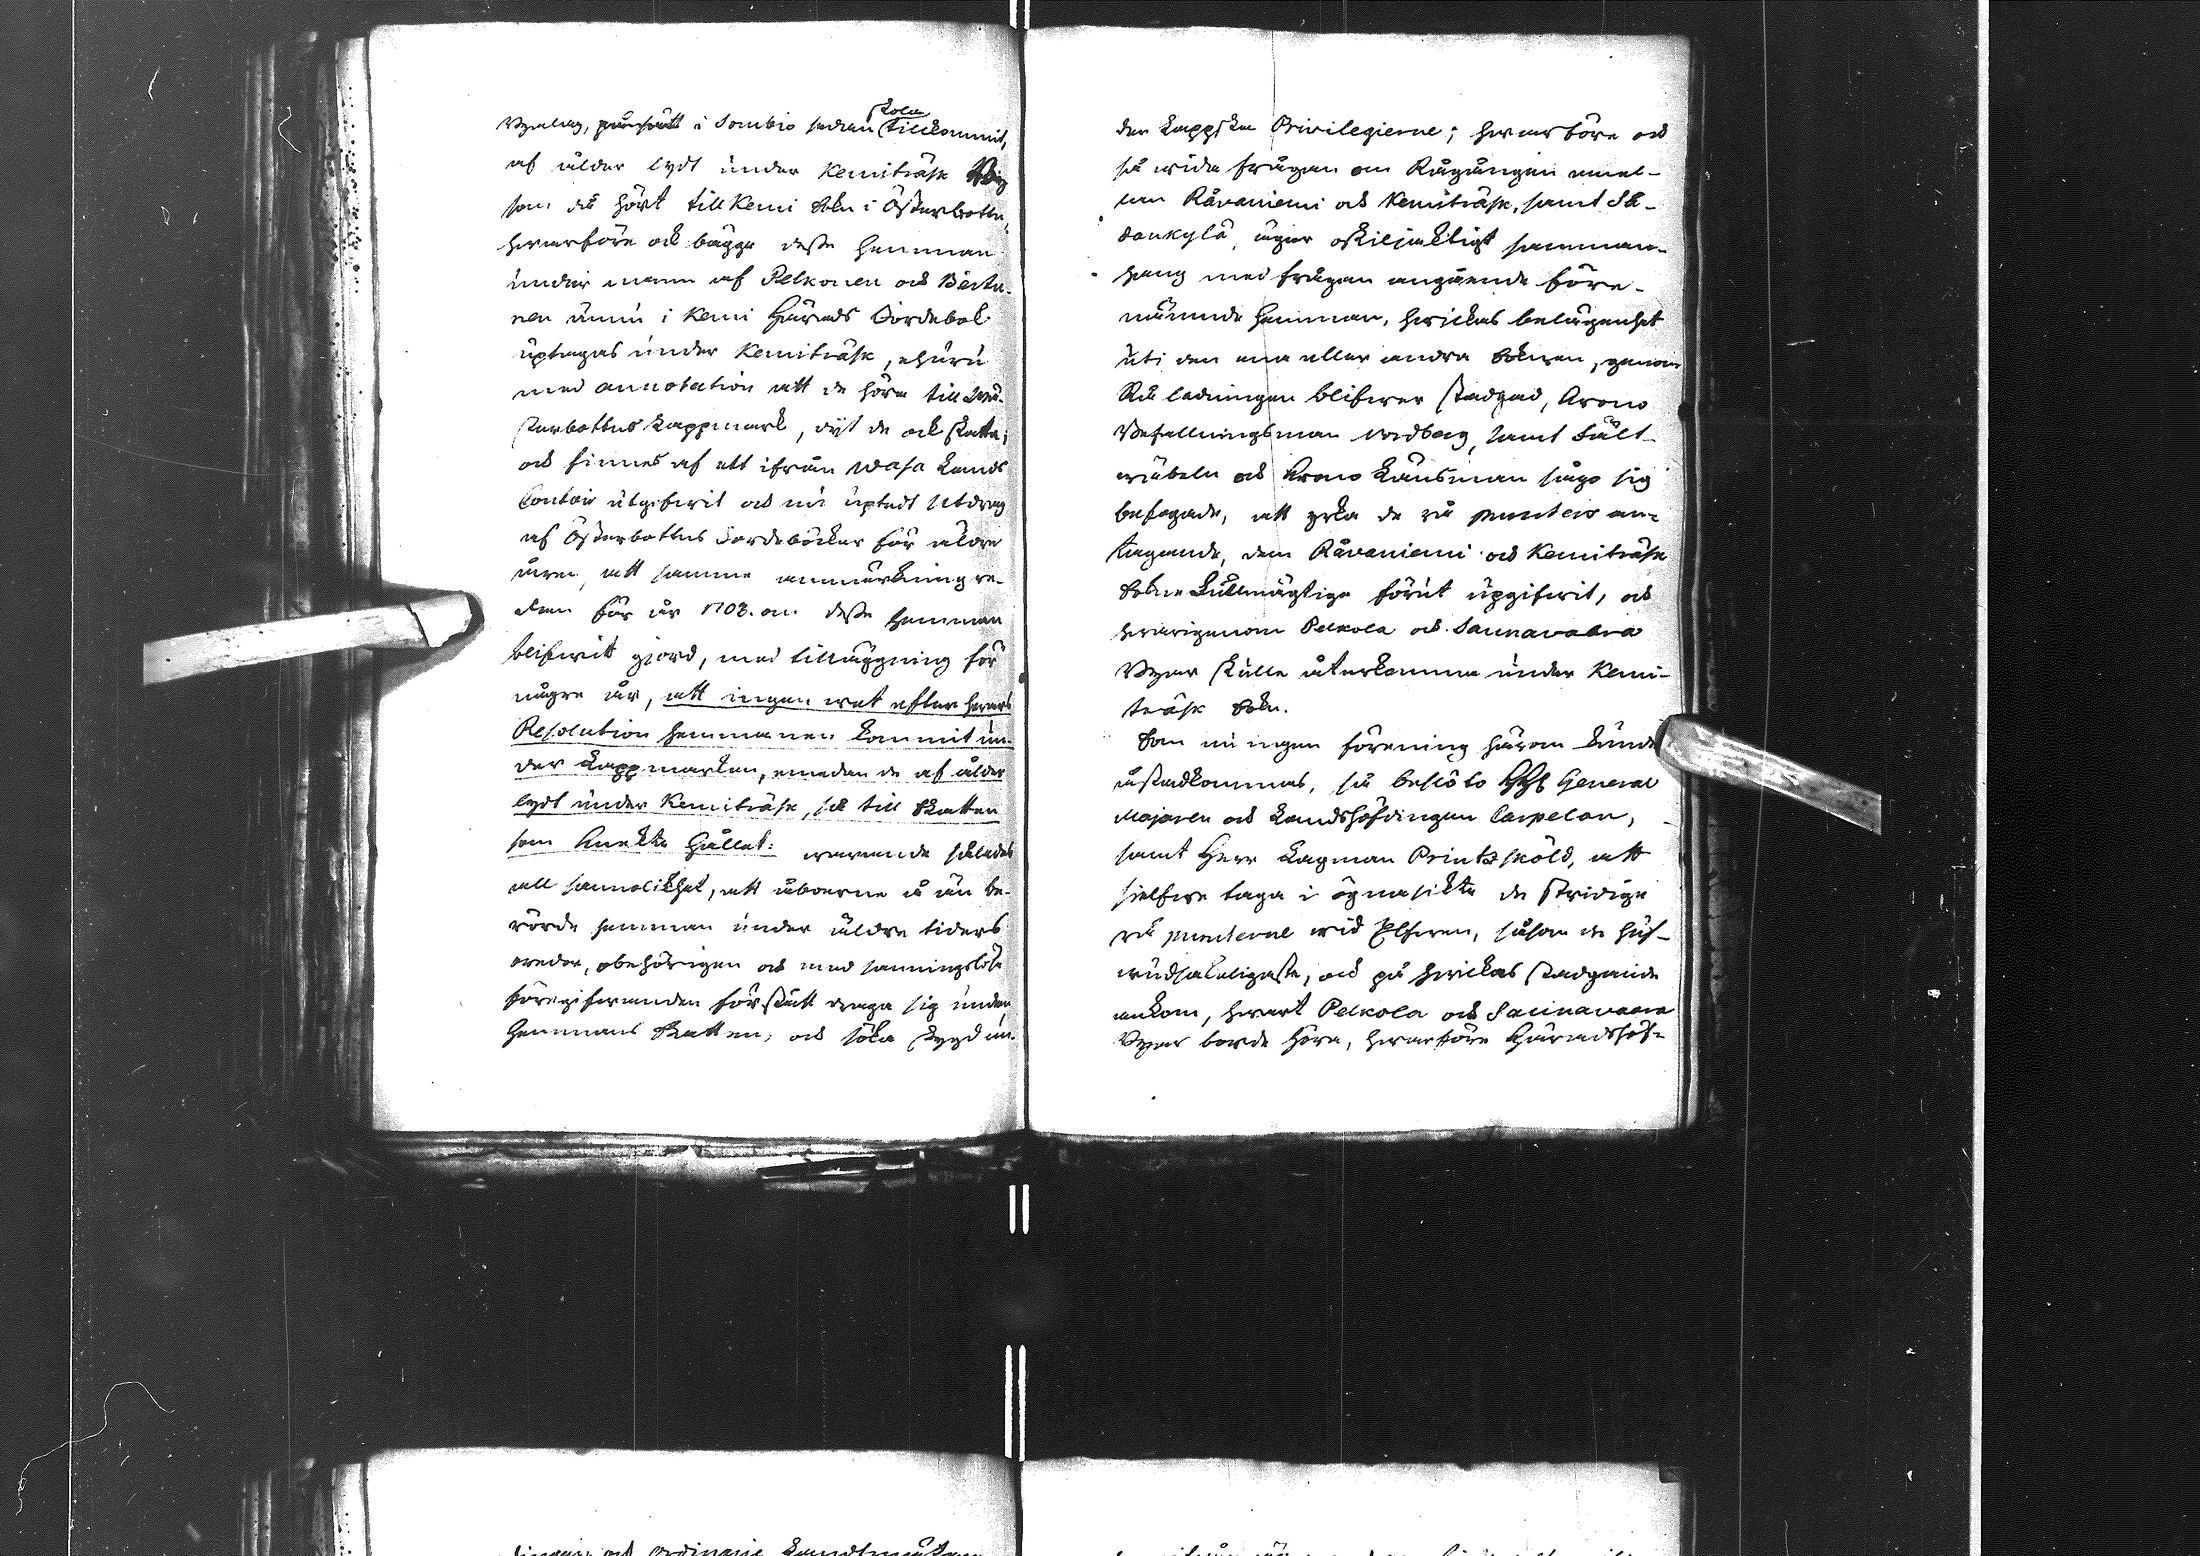 Nybelag, i Sombio sedan skola tillkommit,
af ålder lydt under Kemiträsk By
som då hört till Kemi Sokn i Österbotten,
hwarföre ock bägge desse Hemman
under namn af Pelkonen och Berta-
nen ännu i Kemi Härads Jordebok
uptagas under Kemiträsk, ehuru
med annotation att de höra till We-
sterbottns Lappmark, dit de ock skatta;
och finnes af ett ifrån Wasa Lands
Contoir utgifwit och nu uptedt Utdrag
af Österbottns Jordeböcker för äldre
åren, att samme anmärkning re-
dan för år 1703. om desse Hemman
blifwit gjord, med tilläggning för
några år, att ingen wet efter hwars
Resolution hemmanen kommit un-
der Lappmarken, emedan de af ålder
lydt under Kemiträsk, så till Skatten
som Knekte Hållet: warande således
all sannolikhet, att åboerne å än be-
rörde hemman under äldre tiders
oredor, obehörigen och med sanningslöse
föregifwanden förstått draga sig undan
Hemmans Skatten, och söka skygd un-
der Lappska Privilegierne; hwarföre och
så wida frågan om Rågången emel-
lan Råvaniemi och Kemiträsk, samt So-
dankylä, äger oskiljaktigt samman-
hang med frågan angående före-
nämnde Hemman, hwilkas belägenhet
uti den ena eller andra Soknen, genom
Rå ledningen blifwer stadgad, Krono
Befallningsman Nordberg, samt Fält-
wäbeln och Krono Länsman sågo sig
befogade, att yrka de rå puncters an-
tagande, dem Råvaniemi och Kemiträsk
Sokne Fullmägtige förut upgifwit, och
hwarigenom Pelkola och Saunavaara
Byar skulle återkomma under Kemi-
träsk Sokn.
Som nu ingen förening härom kunde
åstadkommas, så beslöto General
Majoren och Landshöfdingen Carpelan,
samt Herr Lagman Printzsköld, att
sielfwe taga i ögnasikte de stridige
rå puncterne wid Elfwen, såsom de huf-
wudsakeligaste, och på hwilkas stadgande
ankom, hwart Pelkola och Saunavaara
Byar borde höra, hwarföre Häradshöf-
och Ordinarie Landtmätaren